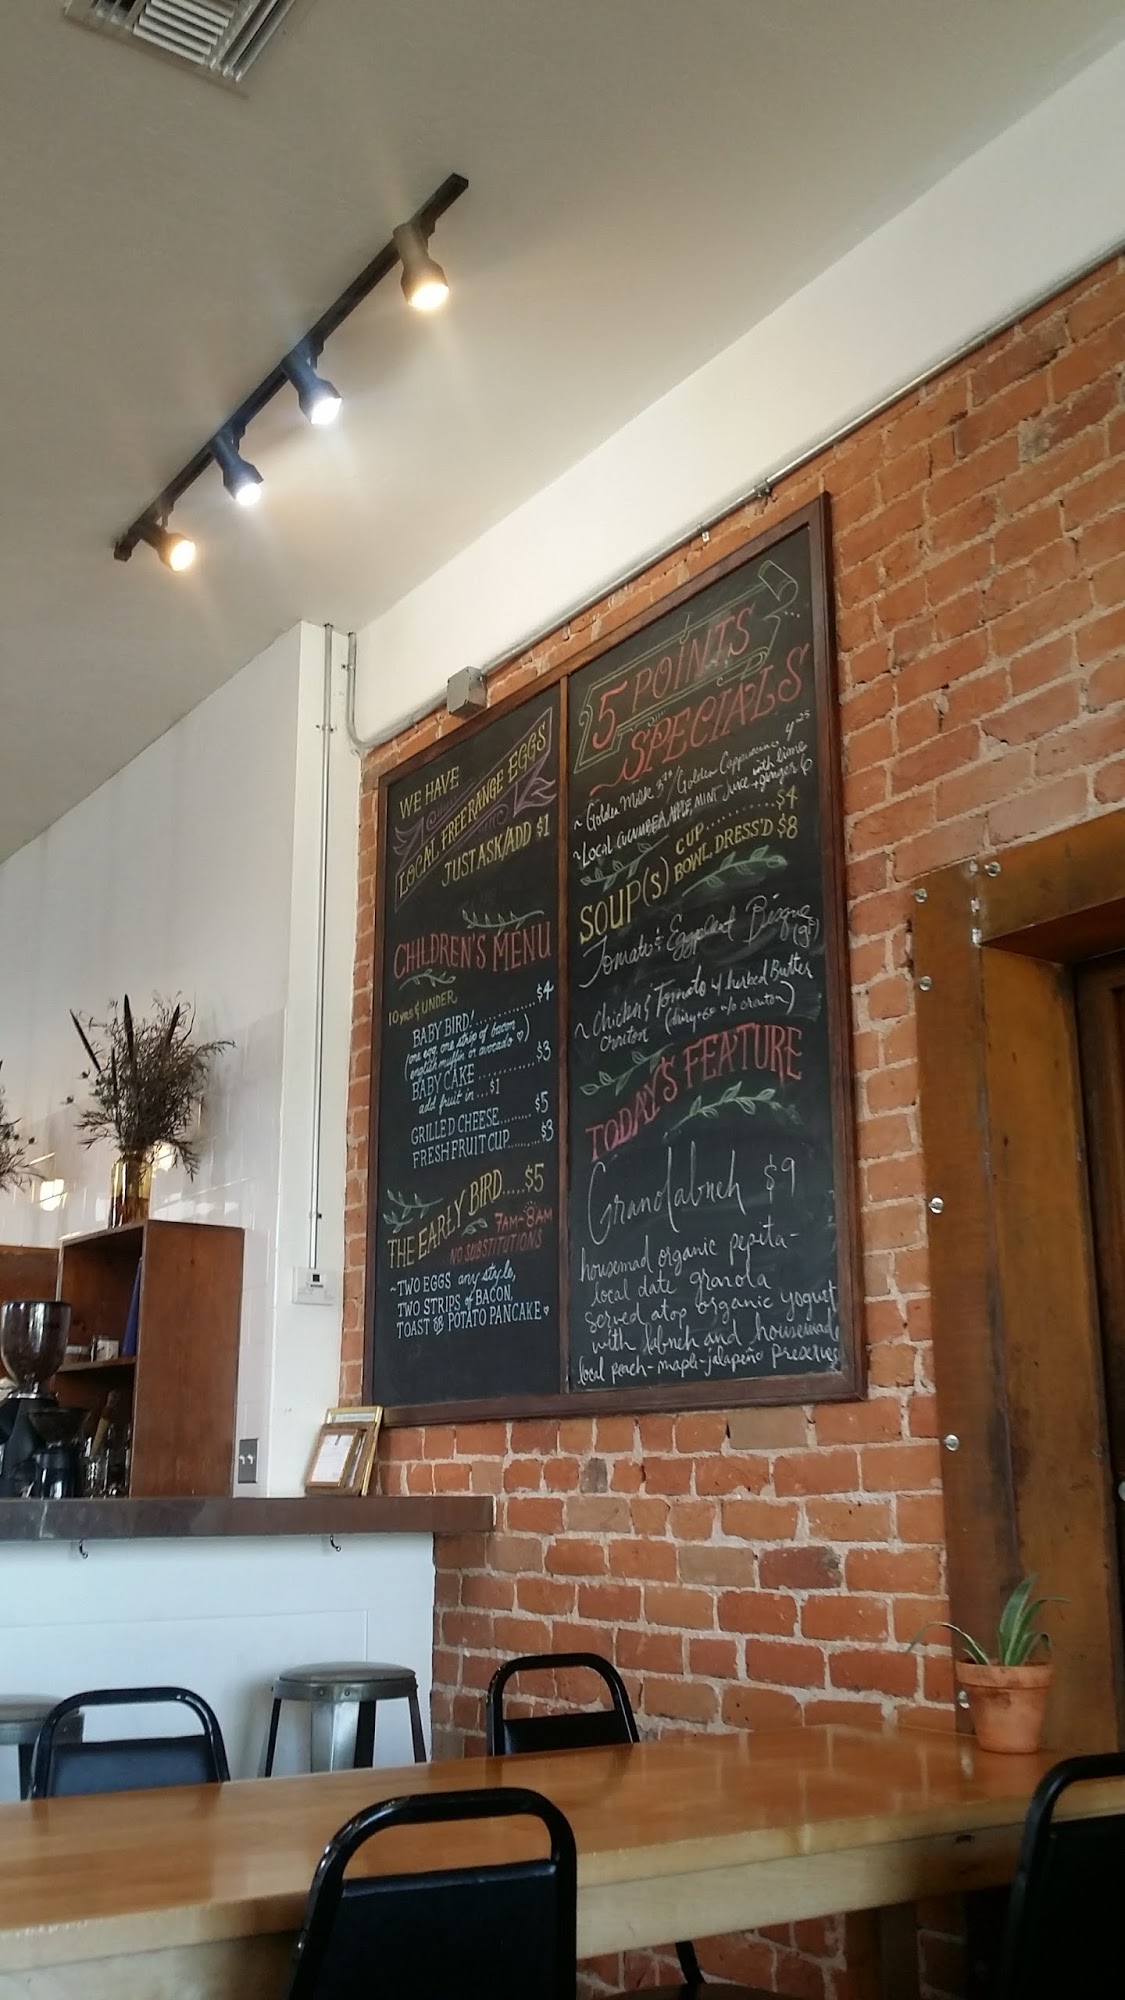 WE HAVE
LOCAL FREERANGE EGGS
JUST ASK/ADD $1
CHILDREN'S MENU
10 yrs & UNDER
BABY BIRD!..............$4
(one egg, one strip of bacon
english muffin or avocado ♡)
BABY CAKE............$3
add fruit in...$1
GRILLED CHEESE........$5
FRESH FRUIT CUP........$3
THE EARLY BIRD.....$5
7AM-8AM
NO SUBSTITUTIONS
~TWO EGGS any style,
TWO STRIPS of BACON,
TOAST & POTATO PANCAKE ♥
5 POINTS
SPECIALS
~ Golden Milk 3 / Golden Cappuccino 4.25
~LOCAL CUCUMBER, APPLE, MINT Juice with lime
+ginger 6
SOUP(S)
CUP...........$4
BOWL, DRESS'D $8
Tomato & Eggplant Bisque
(gf)
~ Chicken & Tomato w/ herbed Butter
crouton (dairy+gf w/o crouton)
TODAY'S FEATURE
Granolabneh $9
housemad organic pepita-
local date granola
served atop organic yogurt
with labneh and housemade
local peach-maple-jalapeño preserves